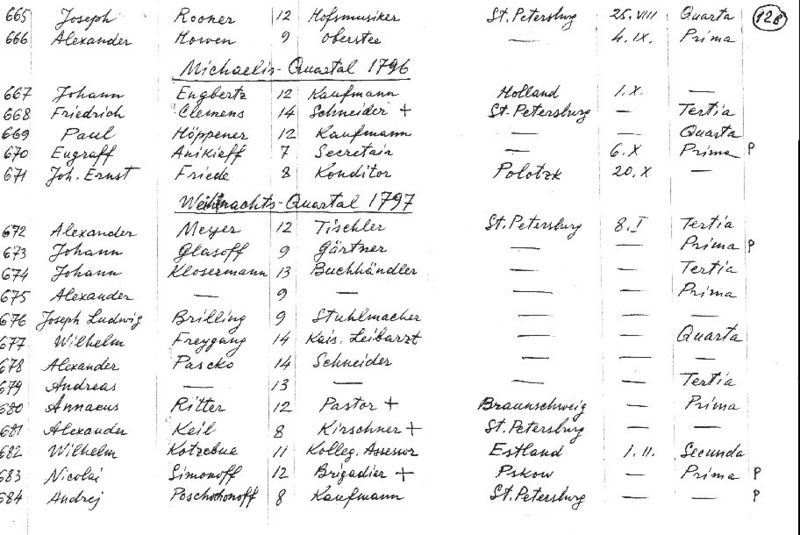 665 Joseph Rooner 12 Hofsmusiker St. Petersburg 25. VIII Quarta 128
666 Alexander Howen 9 Oberster — 4. IX. Prima
Michaelis-Quartal 1796
667 Johann Engbertz 12 Kaufmann Holland 1. X. —
668 Friedrich Clemens 14 Schneider + St. Petersburg — Tertia
669 Paul Höppener 12 Kaufmann — — Quarta
670 Eugraff Anikieff 7 Secretair — 6. X Prima P
671 Joh. Ernst Friede 8 Konditor Polotzk 20. X —
Weihnachts-Quartal 1797
672 Alexander Meyer 12 Tischler St. Petersburg 8. I Tertia
673 Johann Glasoff 9 Gärtner — — Prima P
674 Johann Klosermann 13 Buchhändler — — Tertia
675 Alexander — 9 — — — Prima
676 Joseph Ludwig Brilling 9 Stuhlmacher — — —
677 Wilhelm Freygang 14 Kais. Leibarzt — — Quarta
678 Alexander Pascko 14 Schneider — — —
679 Andreas — 13 — — — Tertia
680 Annaeus Ritter 12 Pastor + Braunschweig — Prima
681 Alexander Keil 8 Kirschner + St. Petersburg — —
682 Wilhelm Kotzebue 11 Kolleg. Assessor Estland 1. II. Secunda
683 Nicolai Simonoff 12 Brigadier + Pskow — Prima P
684 Andrej Poschochonoff 8 Kaufmann St. Petersburg — — P